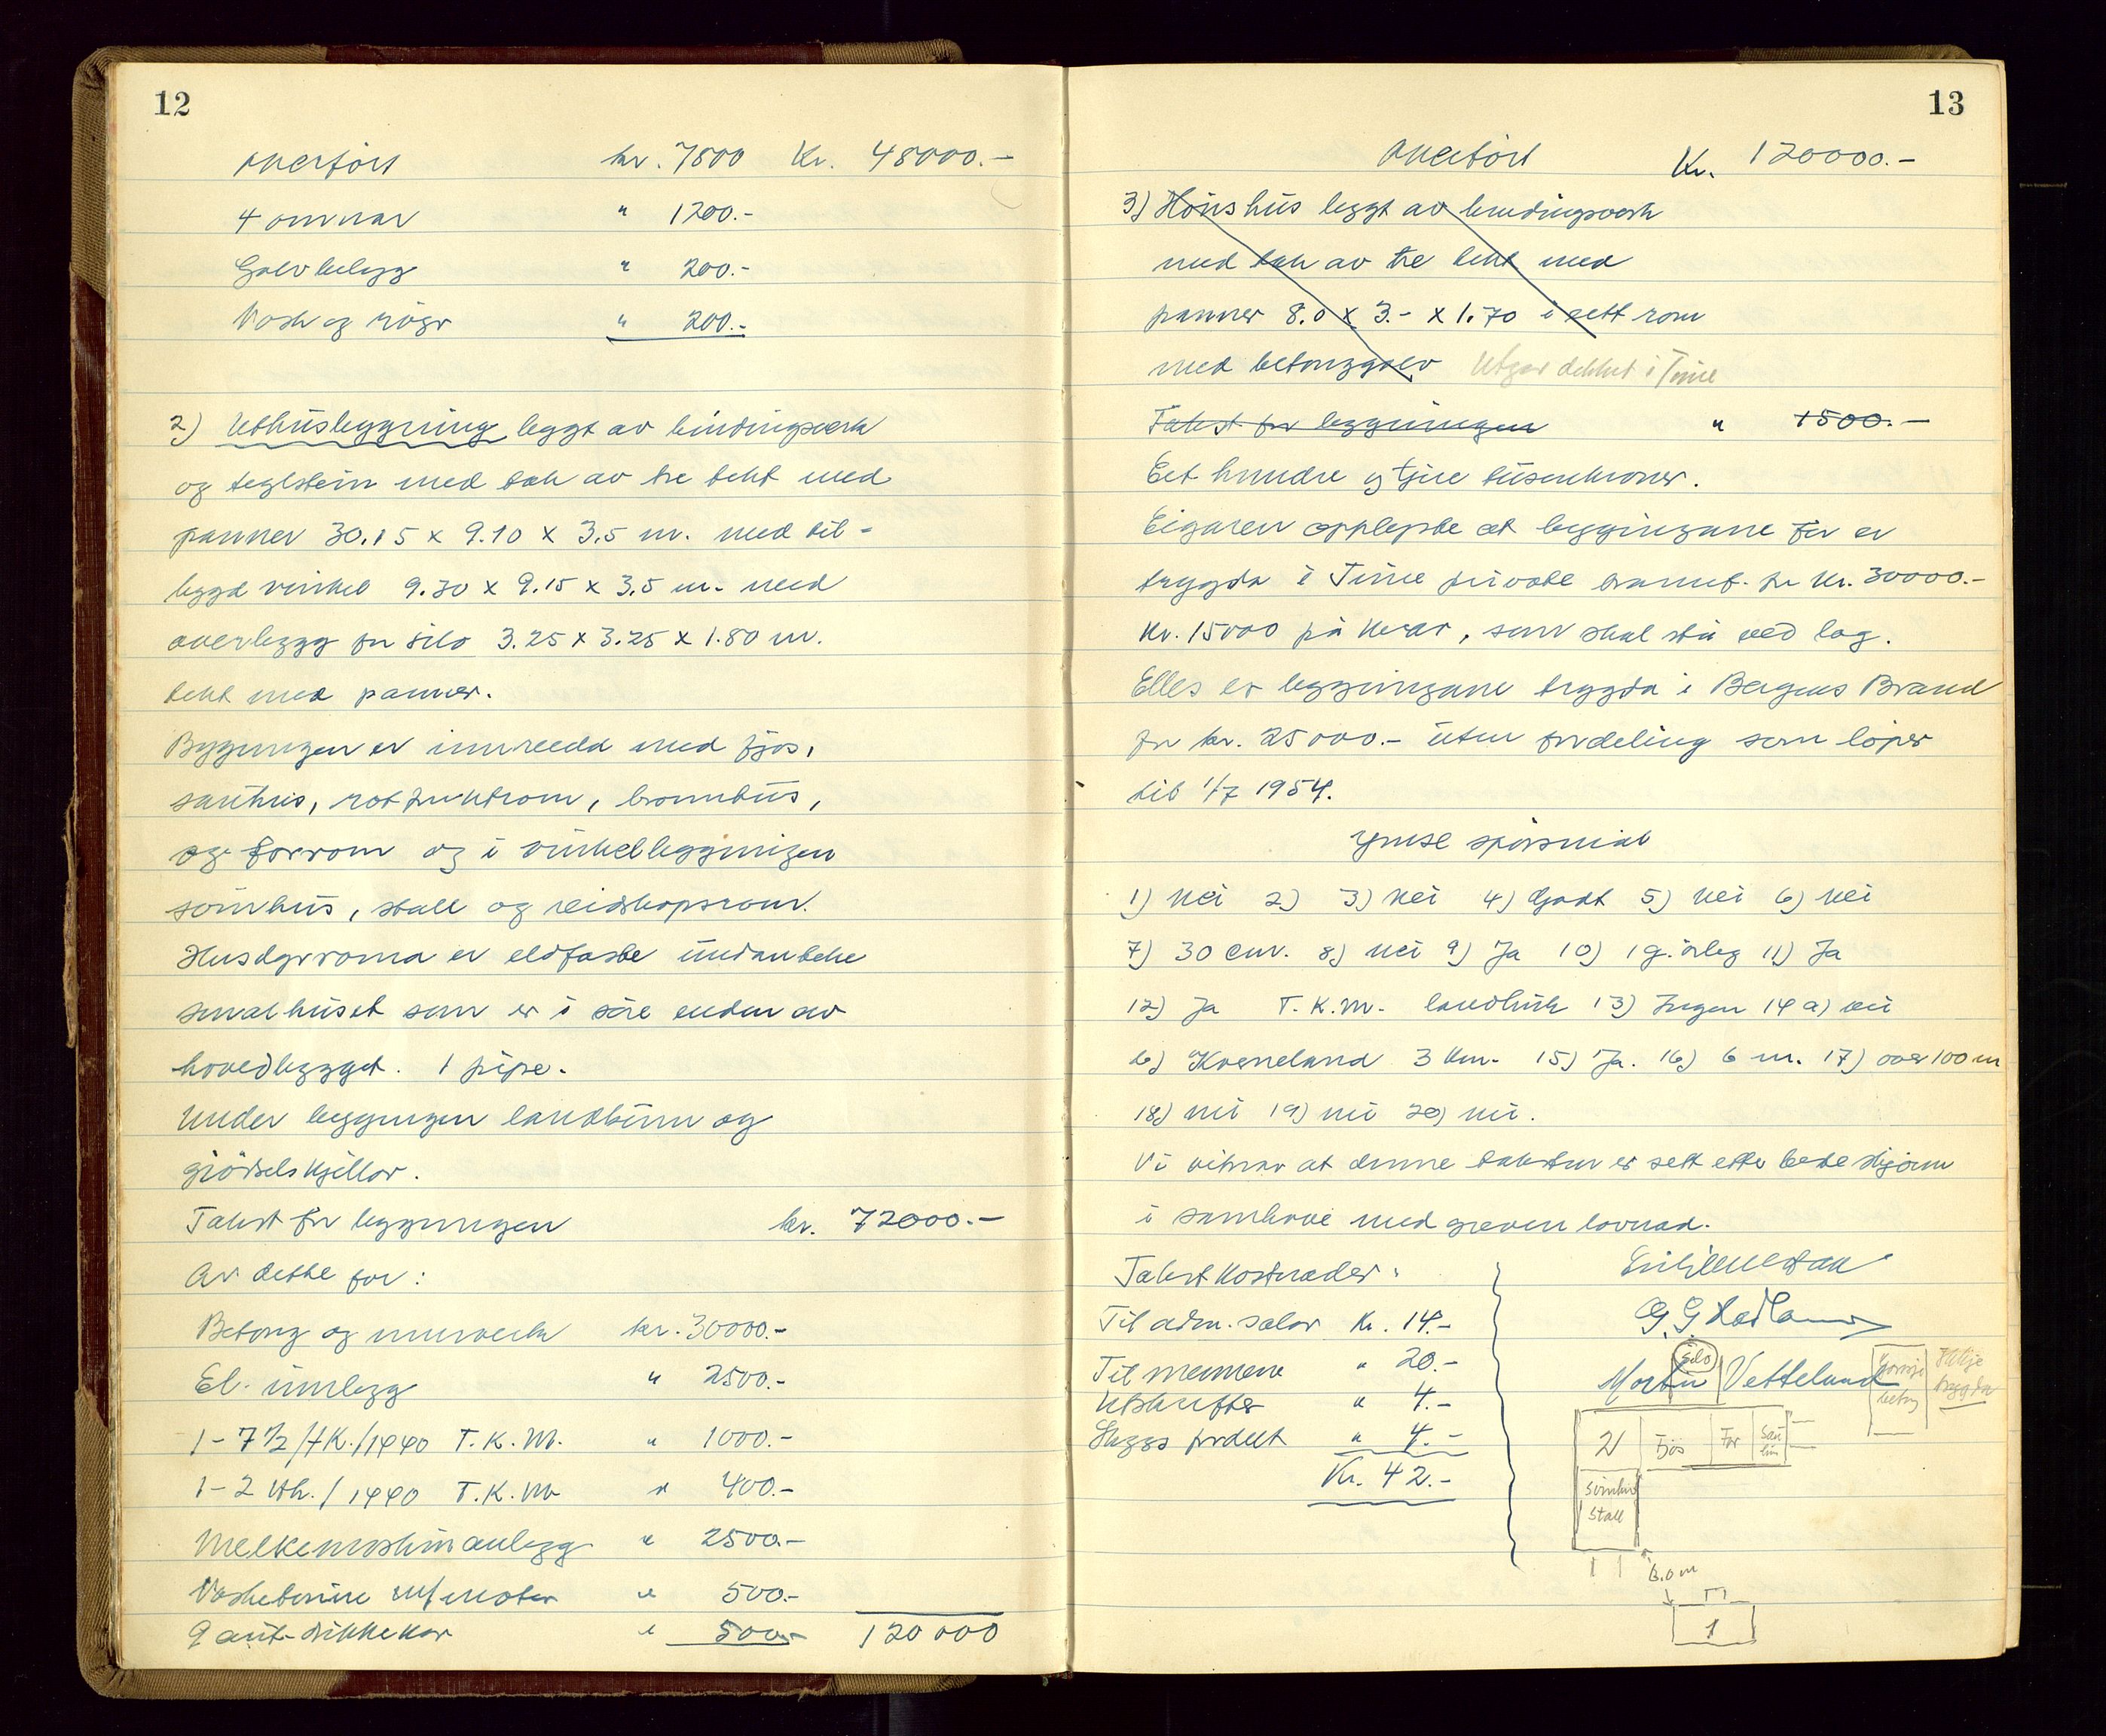 12
Overført kr. 7800 Kr. 48000.-
4 omnar " 1200.-
Golvbelegg " 200.-
Vask og røyr " 200.-
2) Uthusbygning bygt av bindingsverk
og teglstein med tak av tre tekt med
panner 30.15 x 9.10 x 3.5 m. med til-
bygd vinkel 9.30 x 9.15 x 3.5 m. med
overbygg for silo 3.25 x 3.25 x 1.80 m.
tekt med panner.
Bygningen er innreedd med fjøs,
sauhus, rotfruktrom, brønnhus,
og forrom og i vinkelbygningen
svinhus, stall og reidskapsrom.
Husdyrroma er eldfaste undanteke
smalhuset som er i søre enden av
hovedbygget. 1 pipe.
Under bygningen landkum og
gjødselskjellar.
Takst for bygningen kr. 72000.-
Av dette for:
Betong og murverk kr. 30000.-
El. innlegg " 2500.-
1 - 7 1/2 HK./1440 T.K.M. " 1000.-
1 - 2 Hk./1440 T.K.M " 400.-
Melkemaskinanlegg " 2500.-
Vasketrine m/motor " 500.-
9 aut. drikkekar " 500.- 120000
13
Overført Kr. 120000.-
3) Hønshus bygt av bindingsverk
med tak av tre tekt med
panner 8.0 x 3.- x 1.70 i eett rom
med betonggolv Utgår dekket i Time
Takst for bygningen " 1500.-
Eet hundre og tjue tusenkroner.
Eigaren opplyste at bygningane før er
trygda i Time private brannt. for Kr. 30000.-
Kr. 15000 på kvar, som skal stå ved lag.
Elles er bygningane trygda i Bergens Brand
for kr. 25000.- uten fordeling som løper
til 1/7 1954.
Ymse spørsmål
1) Nei 2) 3) Nei 4) Godt 5) Nei 6) Nei
7) 30 cm. 8) Nei 9) Ja 10) 1 g. årleg 11) Ja
12) Ja T.K.M. landbruk 13) Ingen 14 a) nei
b) Kverneland 3 km. 15) Ja. 16) 6 m. 17) over 100 m
18) nei 19) nei 20) nei.
Vi vitnar at denne taksten er sett etter beste skjønn
i samhøve med greven lovnad.
Takstkostnader:
Til adm. salær Kr. 14.-
Til mennene " 20.-
Utskrifter " 4.-
Skyss fordelt " 4.-
Kr. 42.-
G. G. Hadland
Martin Vetteland
Silo
Ikkje
trygda
2
Fjøs
For
Sau
hus
Svinhus
Stall
6.0 m
1